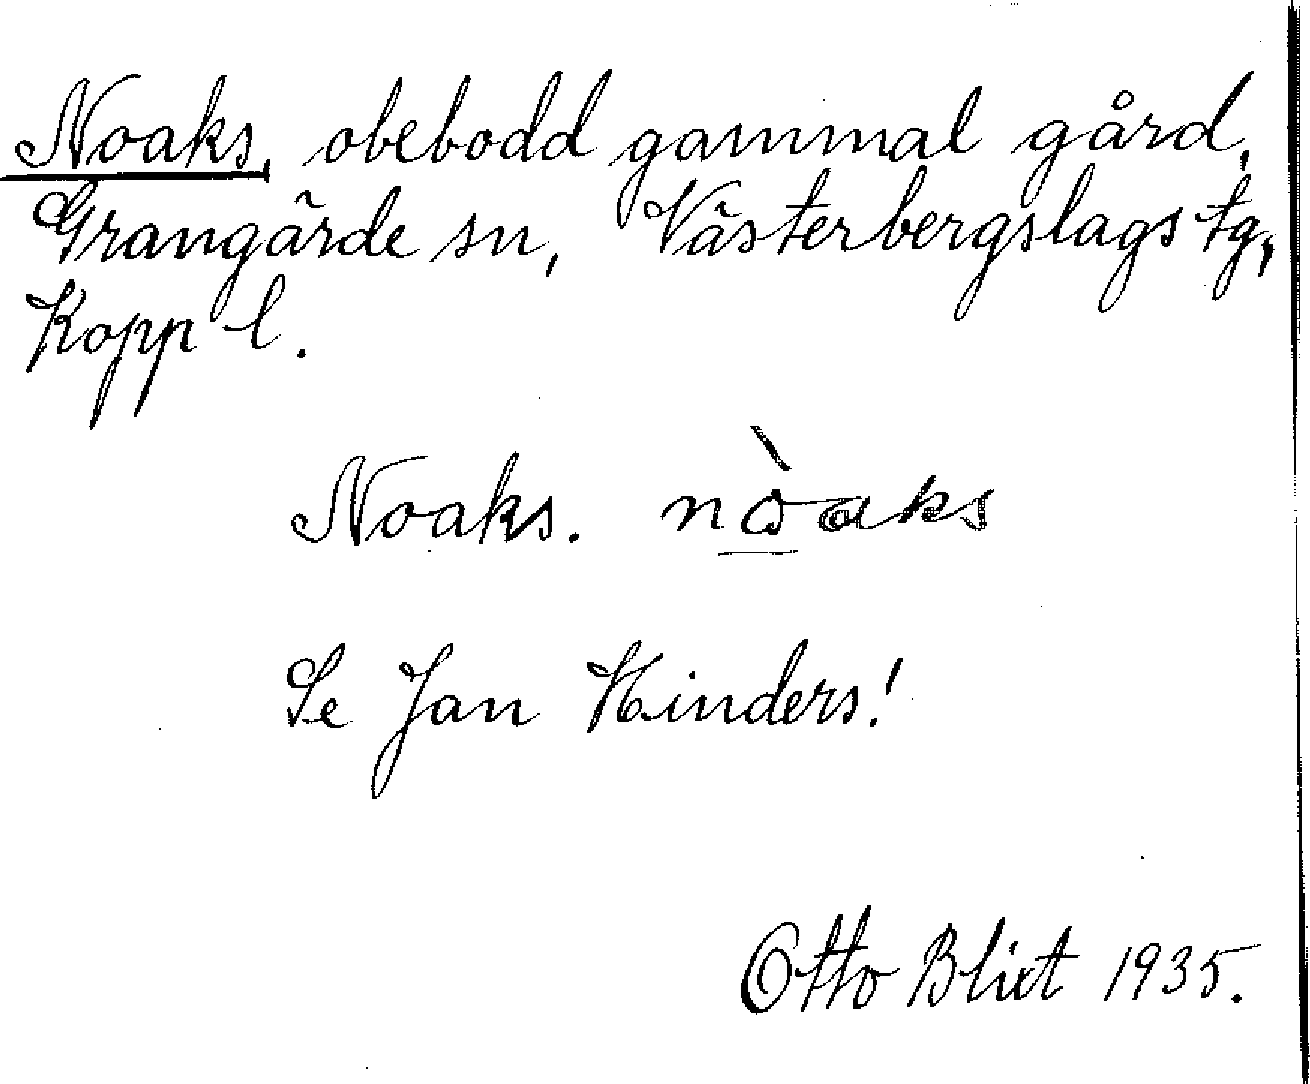 Noaks, obebodd gammal gård,
Grangärde sn, Västerbergslags tg,
Kopp l.
Noaks. nòaks
Se Jan Hinders!
Otto Blixt 1935.